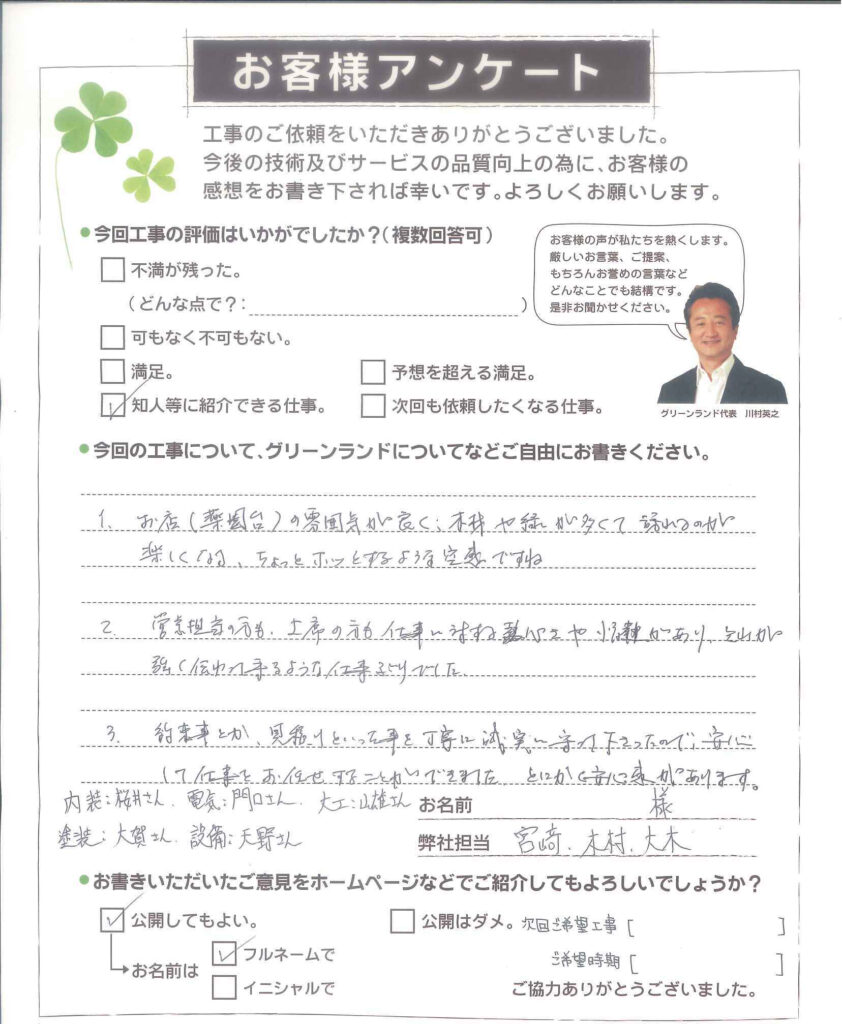 お客様アンケート
工事のご依頼をいただきありがとうございました。
今後の技術及びサービスの品質向上の為に、お客様の
感想をお書き下されば幸いです。よろしくお願いします。
今回工事の評価はいかがでしたか?(複数回答可)
不満が残った。
(どんな点で?: )
可もなく不可もない。
満足。
予想を超える満足。
知人等に紹介できる仕事。
次回も依頼したくなる仕事。
お客様の声が私たちを熱くします。
厳しいお言葉、ご提案、
もちろんお誉めの言葉など
どんなことでも結構です。
是非お聞かせください。
グリーンランド代表 川村英之
今回の工事について、グリーンランドについてなどご自由にお書きください。
1. お店(薬園台)の雰囲気が良く、木材や緑が多くて訪れるのが
楽しくなる、ちょっとホッとするような空感ですね
2. 営業担当の方も、上席の方も仕事に対する や があり、それが
強く伝わって来るような仕事ぶりでした。
3. 約束事とか、見積りといった事を丁寧に誠実に守って下さったので、安心
して仕事をお任せすることができました。とにかく安心感があります。
内装:桜井さん、電気:門口さん、大工:山雄さん
塗装:大賀さん、設備:天野さん
お名前 様
弊社担当 宮﨑、木村、大木
お書きいただいたご意見をホームページなどでご紹介してもよろしいでしょうか?
公開してもよい。
公開はダメ。
次回ご希望工事 [ ]
お名前は
フルネームで
ご希望時期 [ ]
イニシャルで
ご協力ありがとうございました。